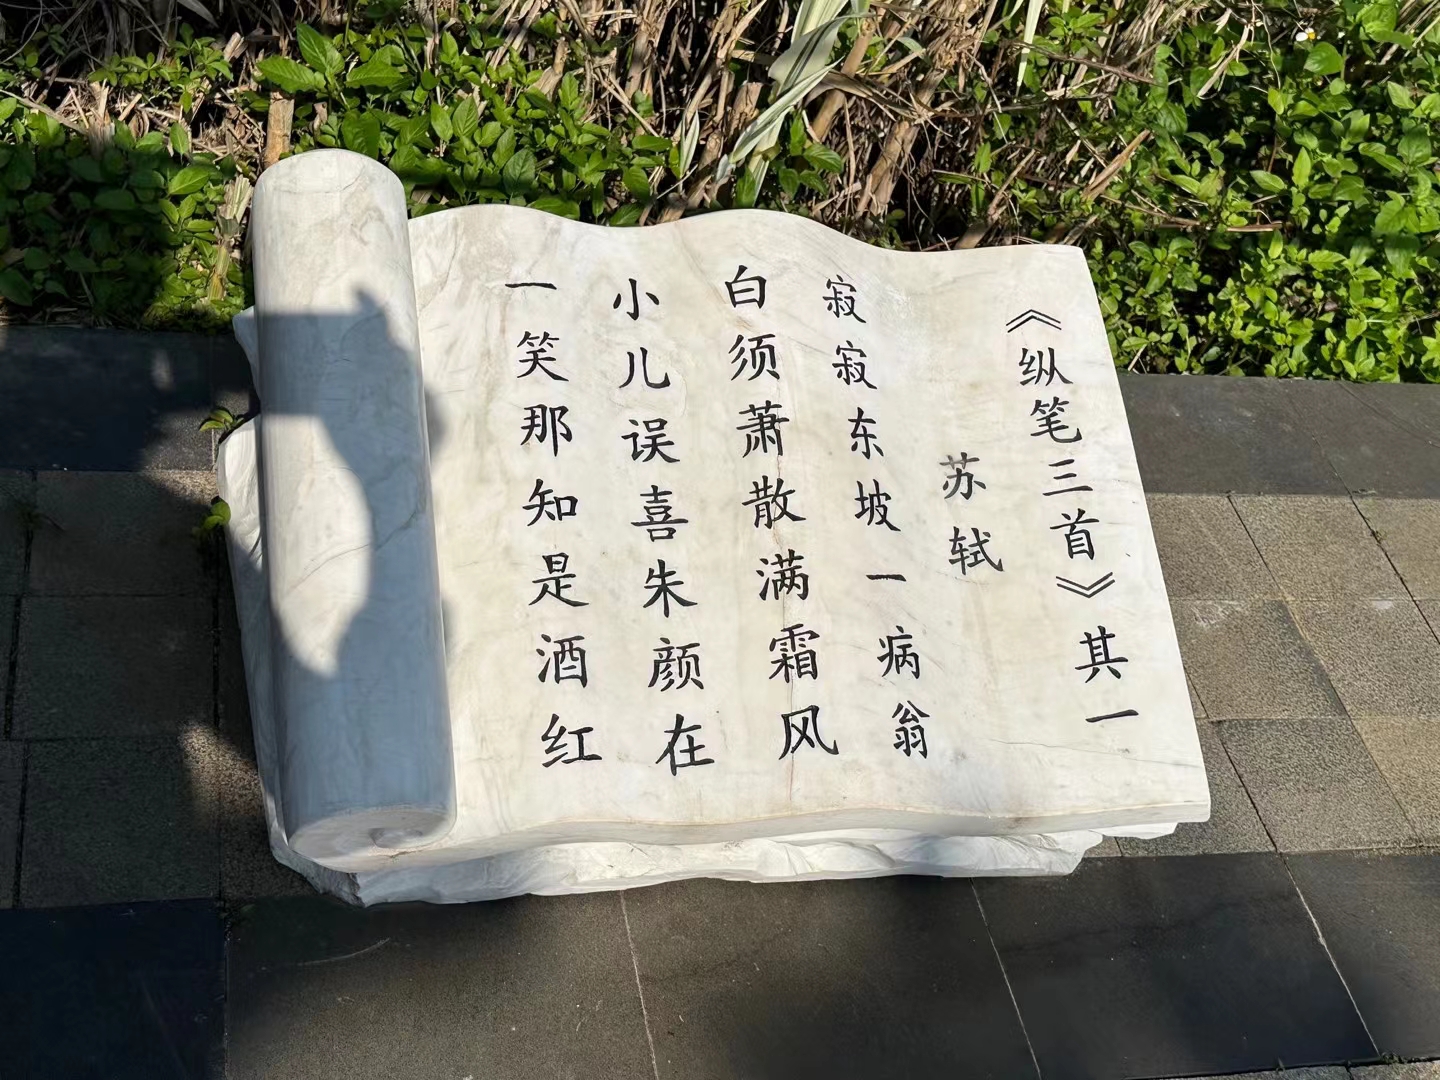 《纵笔三首》其一
苏轼
寂寂东坡一病翁
白须萧散满霜风
小儿误喜朱颜在
一笑那知是酒红